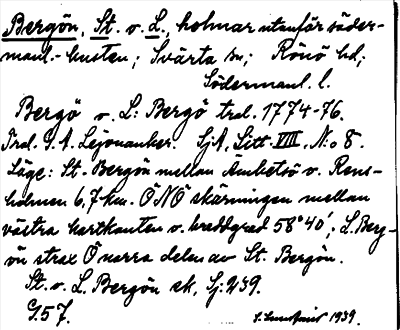 Bergön, St. o. L., holmar utanför söder-
manl.-kusten; Svärta sn; Rönö hd;
Södermanl. l.
Bergö o. L: Bergö trol. 1774-76.
Trol. G.A. Lejonanker. SjA, Litt VIII, N:o 8.
Läge: St. Bergön mellan Ämbetsö o. Rens-
holmen 6,7 km. ÖNÖ skärningen mellan
västra kartkanten o. breddgrad 58°40'; L. Berg-
ön strax Ö norra delen av St. Bergön.
St. o. L. Bergön ek, Sj: 239.
G57. 1939.